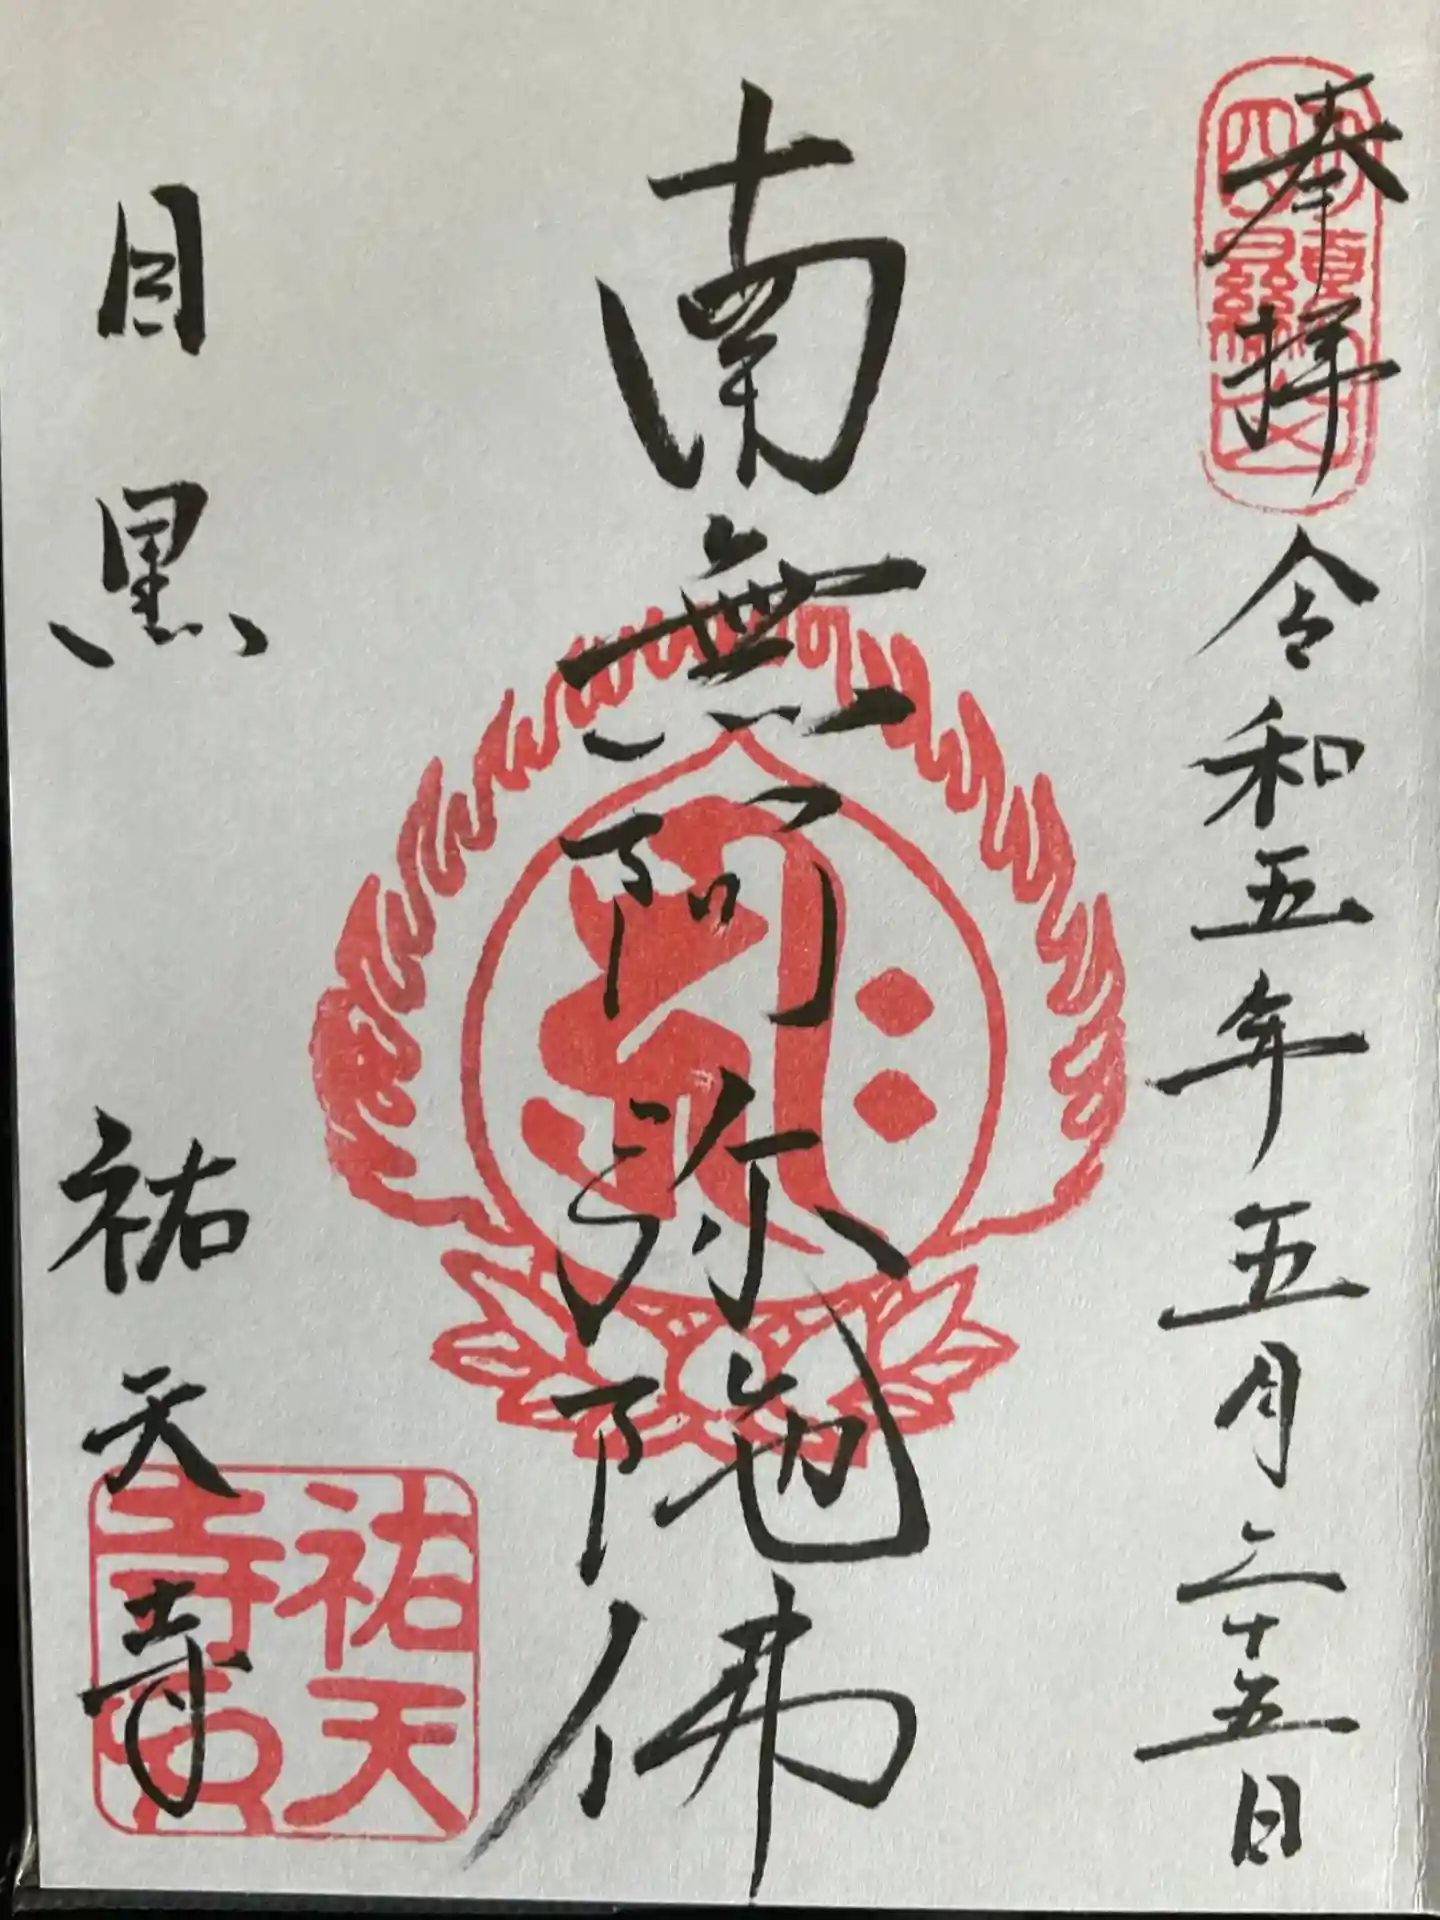 奉拝 令和五年五月二十五日
南無阿弥陀佛
目黒 祐天寺
祐天
寺印